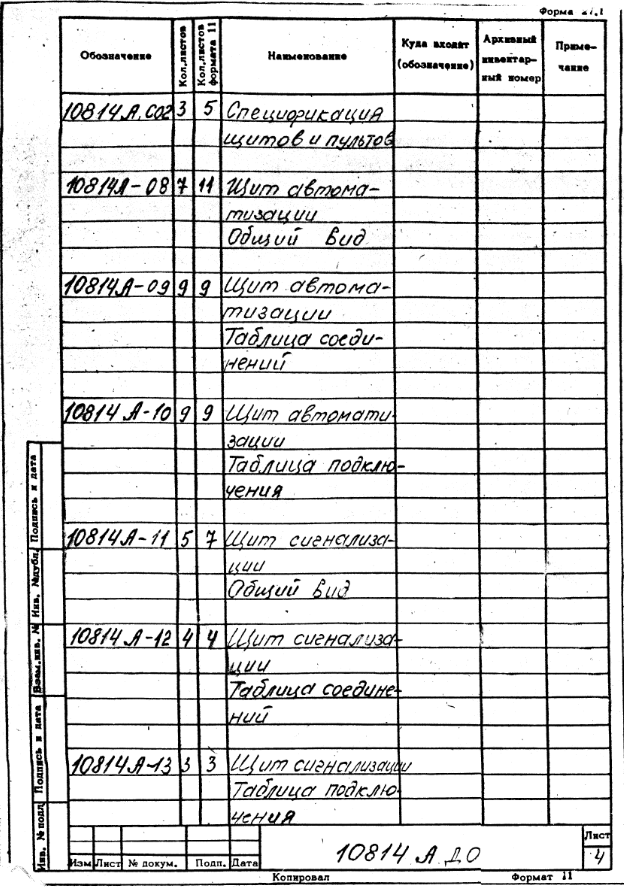 Форма 27.1
Обозначение Кол.листов Кол.листов формата 11 Наименование Куда входит (обозначение) Архивный инвентарный номер Примечание
10814А.С02 3 5 Спецификация
щитов и пультов
10814А-08 7 11 Щит автома-
тизации
Общий вид
10814А-09 9 9 Щит автома-
тизации
Таблица соеди-
нений
10814А-10 9 9 Щит автомати-
зации
Таблица подклю-
чения
10814А-11 5 7 Щит сигнализа-
ции
Общий вид
10814А-12 4 4 Щит сигнализа-
ции
Таблица соедине-
ний
10814А-13 3 3 Щит сигнализации
Таблица подклю-
чения
Инв. № подл. Подпись и дата Взам.инв. № Инв. №дубл. Подпись и дата
Изм Лист № докум. Подп. Дата
10814 А ДО
Лист
4
Копировал Формат 11